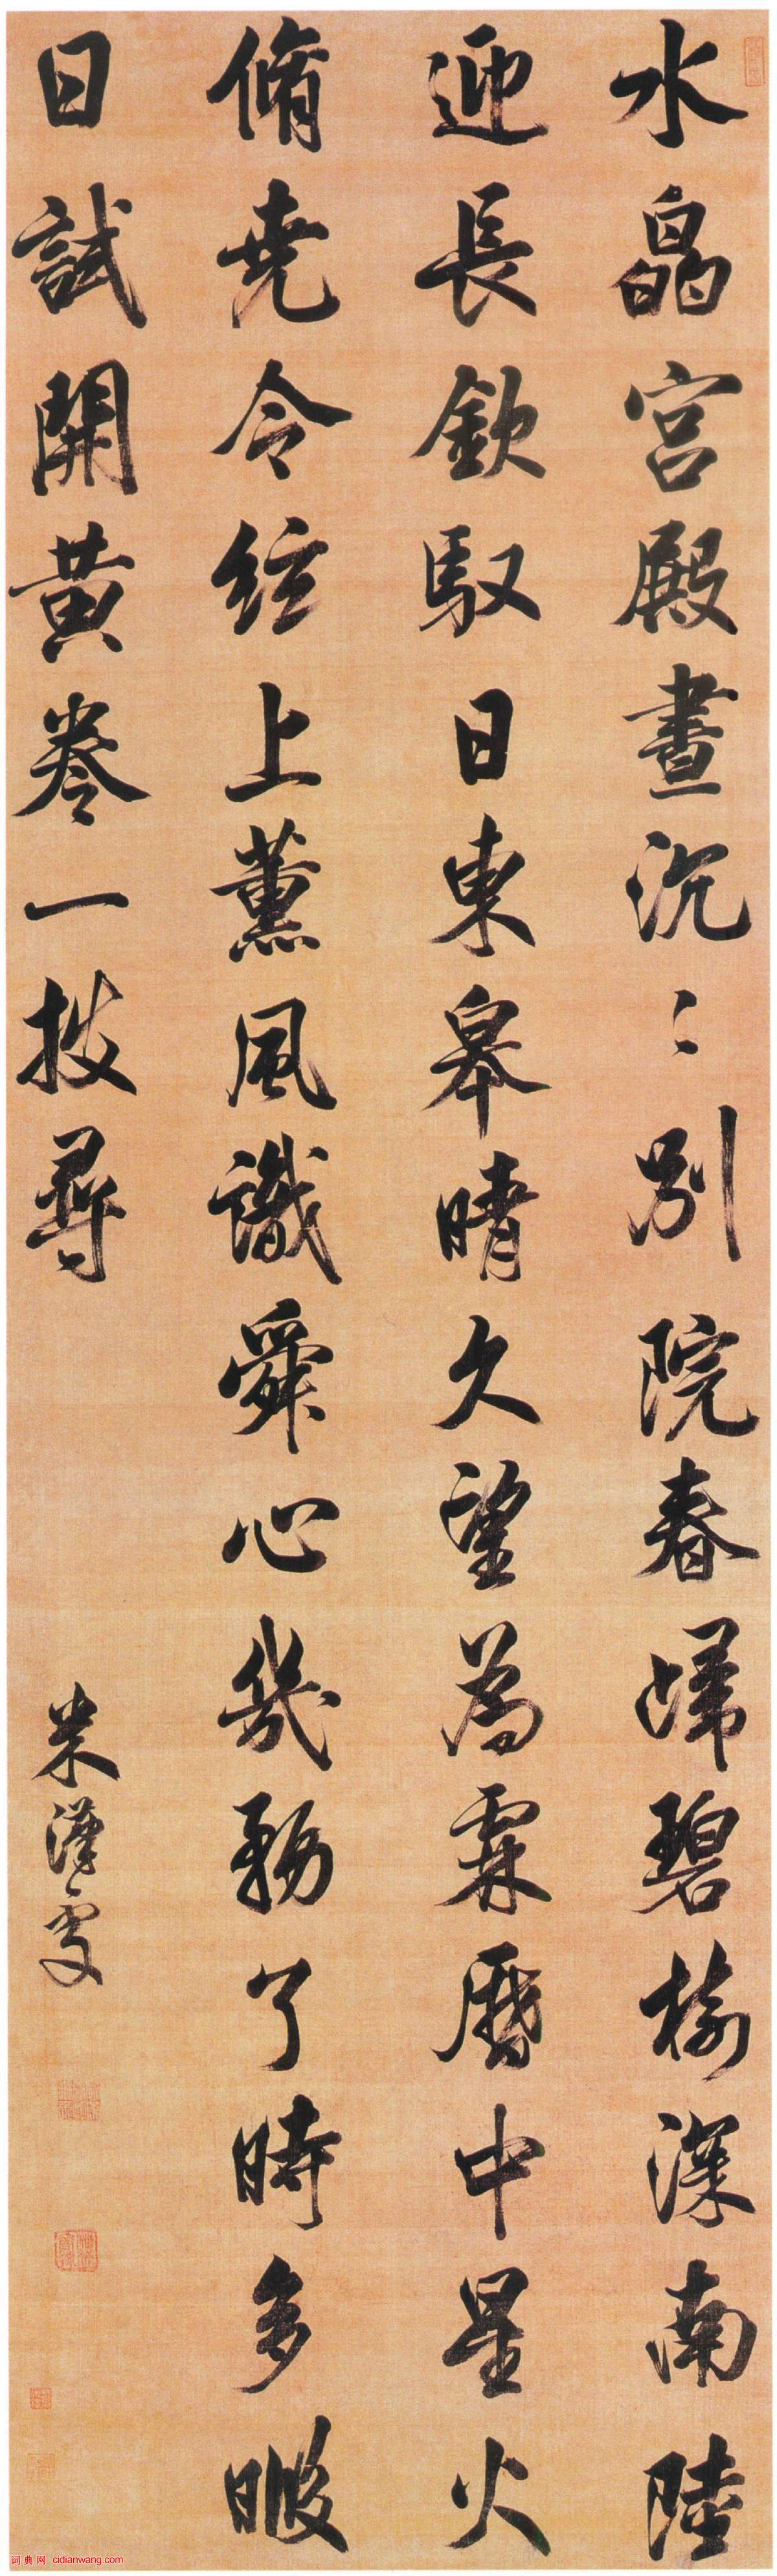 水晶宫殿晝沉〻別院春歸碧榆深南陸
迎長欽馭日東皋晴久望為霖曆中星火
脩堯令絃上薰風識舜心幾務了時多暇
日試開黃卷一披尋
米漢雯
词典网 cidianwang.com